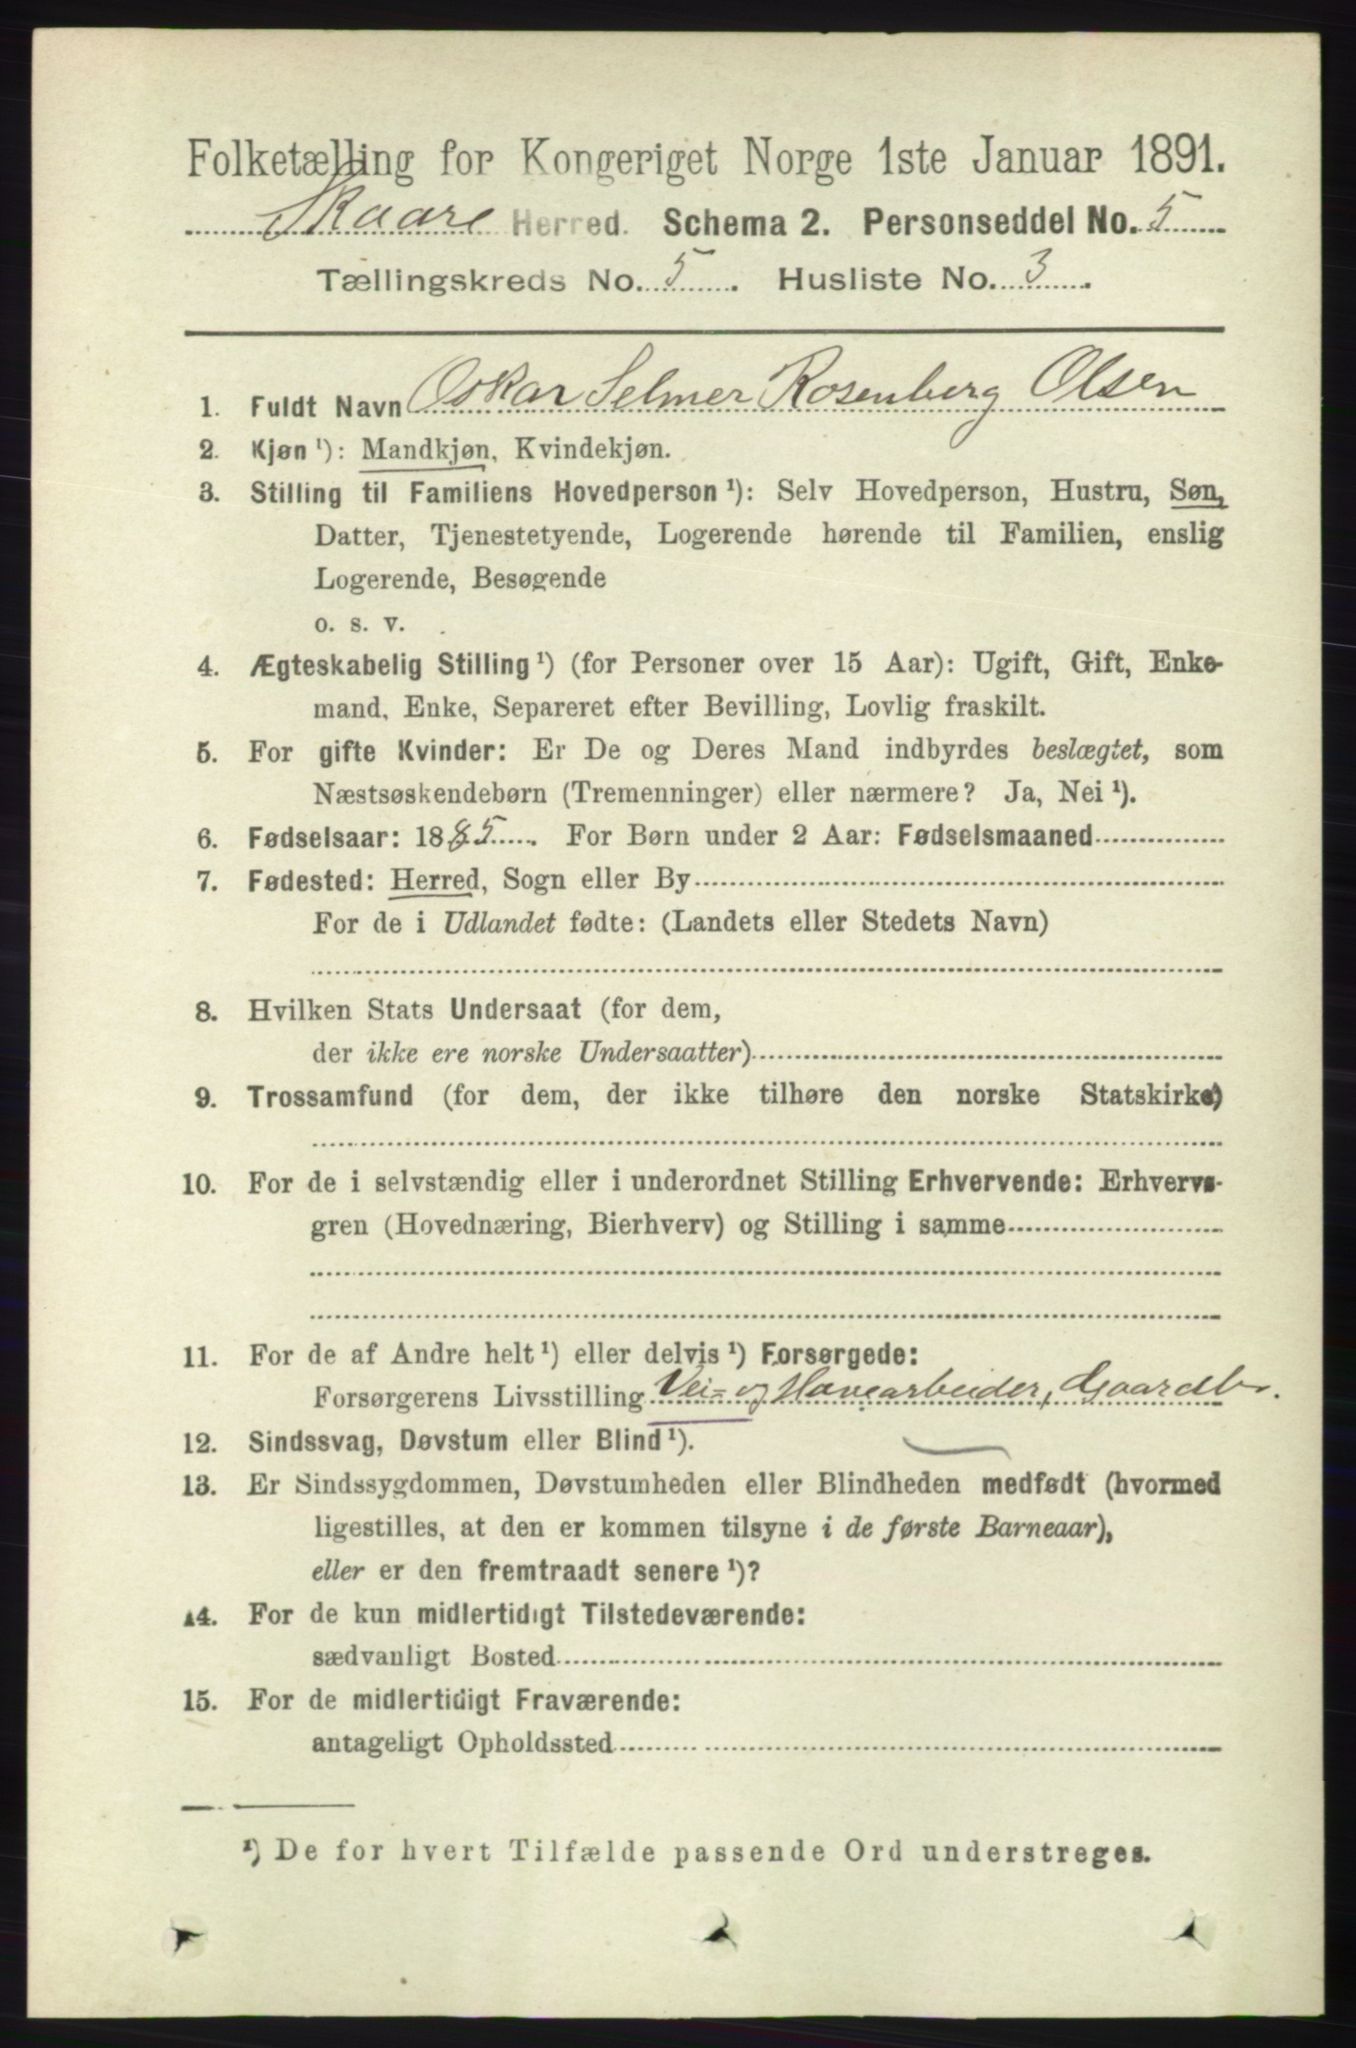 Folketælling for Kongeriget Norge 1ste Januar 1891.
Skaare Herred. Schema 2. Personseddel No. 5
Tællingskreds No. 5. Husliste No. 3.
1. Fuldt Navn Oskar Selmer Rosenberg Olsen
2. Kjøn ¹): Mandkjøn, Kvindekjøn.
3. Stilling til Familiens Hovedperson ¹): Selv Hovedperson, Hustru, Søn,
Datter, Tjenestetyende, Logerende hørende til Familien, enslig
Logerende, Besøgende
o. s. v.
4. Ægteskabelig Stilling ¹) (for Personer over 15 Aar): Ugift, Gift, Enke-
mand, Enke, Separeret efter Bevilling, Lovlig fraskilt.
5. For gifte Kvinder: Er De og Deres Mand indbyrdes beslægtet, som
Næstsøskendebørn (Tremenninger) eller nærmere? Ja, Nei ¹).
6. Fødselsaar: 1885. For Børn under 2 Aar: Fødselsmaaned
7. Fødested: Herred, Sogn eller By
For de i Udlandet fødte: (Landets eller Stedets Navn)
8. Hvilken Stats Undersaat (for dem,
der ikke ere norske Undersaatter)
9. Trossamfund (for dem, der ikke tilhøre den norske Statskirke)
10. For de i selvstændig eller i underordnet Stilling Erhvervende: Erhvervs-
gren (Hovednæring, Bierhverv) og Stilling i samme
11. For de af Andre helt ¹) eller delvis ¹) Forsørgede:
Forsørgerens Livsstilling Vei- og Havearbeider, Gaardbr.
12. Sindssvag, Døvstum eller Blind ¹).
13. Er Sindssygdommen, Døvstumheden eller Blindheden medfødt (hvormed
ligestilles, at den er kommen tilsyne i de første Barneaar),
eller er den fremtraadt senere ¹)?
14. For de kun midlertidigt Tilstedeværende:
sædvanligt Bosted
15. For de midlertidigt Fraværende:
antageligt Opholdssted
¹) De for hvert Tilfælde passende Ord understreges.